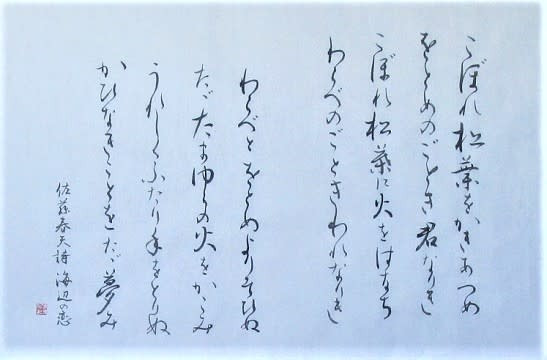 こぼれ松葉をかきあつめ
をとめのごとき君なりき
こぼれ松葉に火をはなち
わらべのごときわれなりき
わらべとをとめよりそひぬ
ただたまゆらの火をかこみ
うれしくふたり手をとりぬ
かひなきことをただ夢み
佐藤春夫詩 海辺の恋